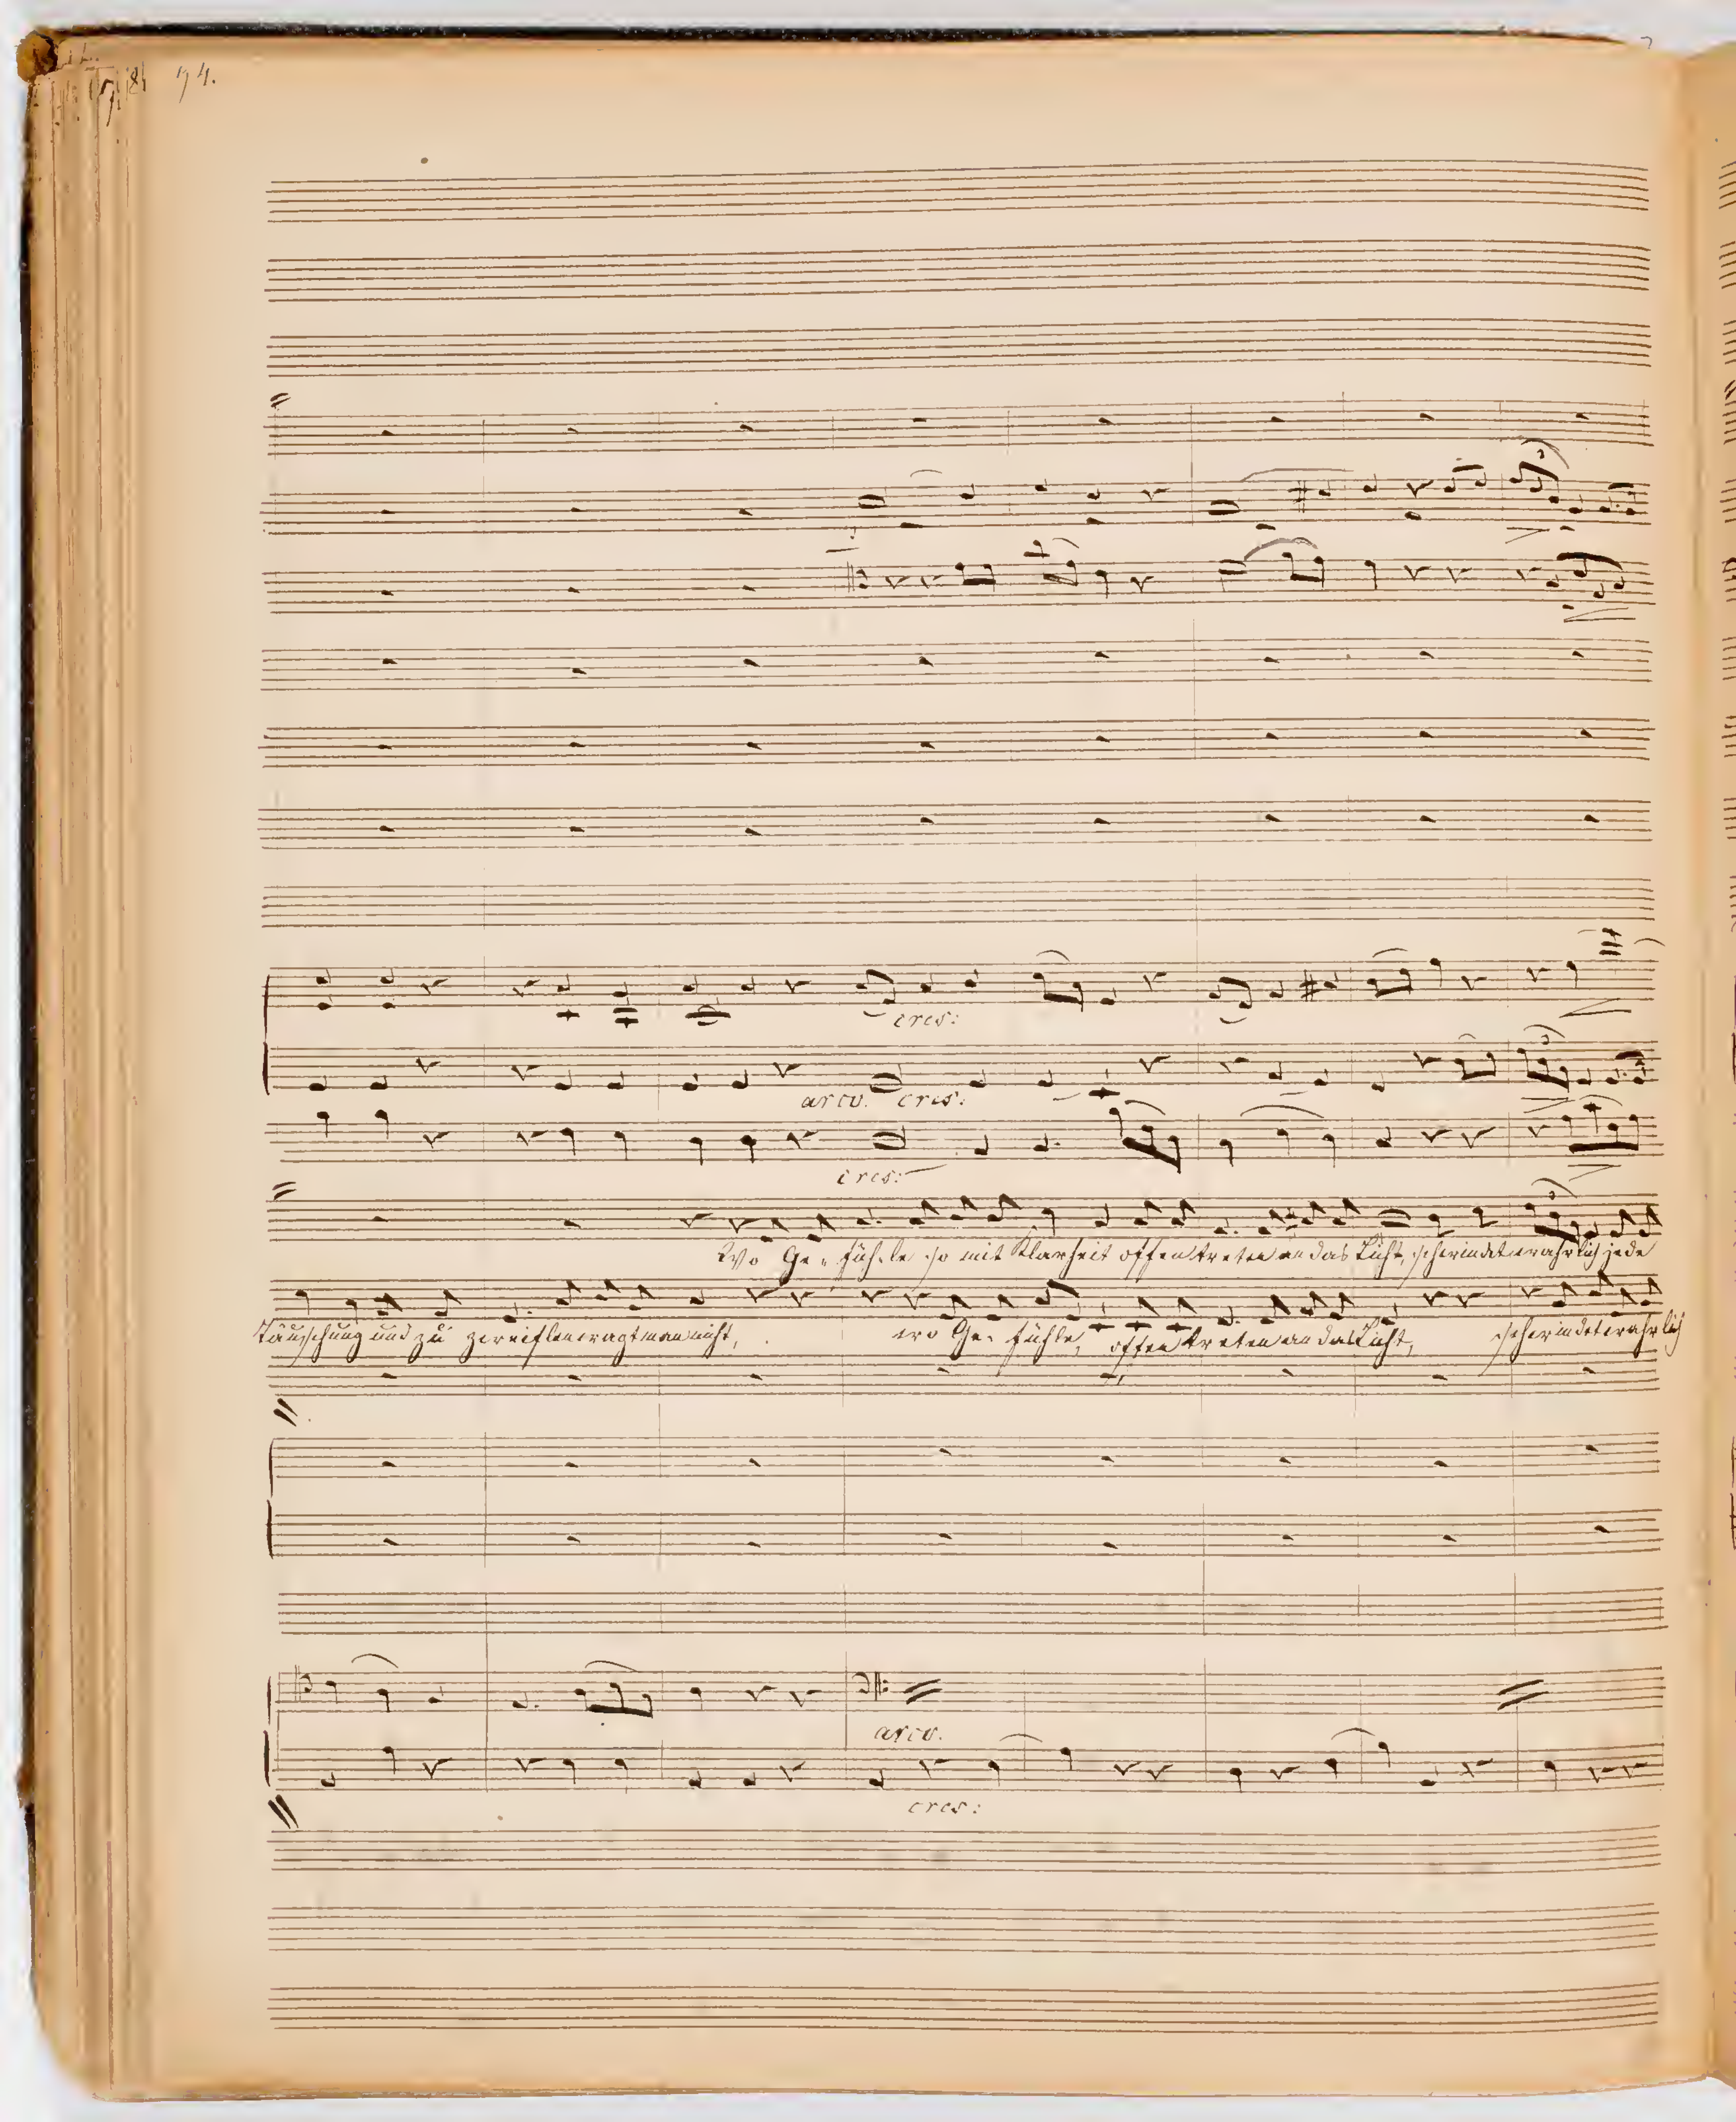 74.
cres:
arco. cres:
cres:
Wo Ge- füh-le so mit Klarheit offen treten an das Licht, schwindet wahrlich jede
Täuschung und zu zweiflen wagt man nicht,
wo Ge- fühle, offen treten an das Licht, schwindet wahrlich
arco.
cres: